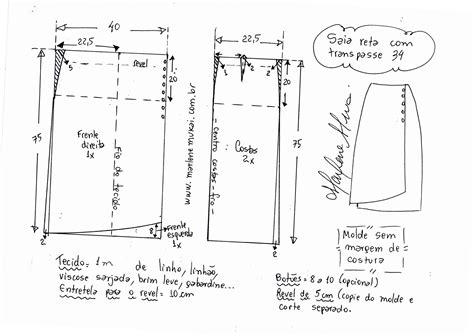 40
22,5
5
revel
20
75
Frente
direita
1x
Fio do tecido
8
Frente
esquerda
1x
2
www.marlenemukai.com.br
22,5
1
2
2
20
75
centro costas - fio
Costas
2x
2
Saia reta com
transpasse 34
Marlene Mukai
Molde sem
margem de
costura
Tecido= 1m de linho, linhão,
viscose sarjada, brim leve, gabardine...
Entretela para o revel = 10 cm
Botões = 8 a 10 (opcional)
Revel de 5cm (copie do molde e
corte separado.